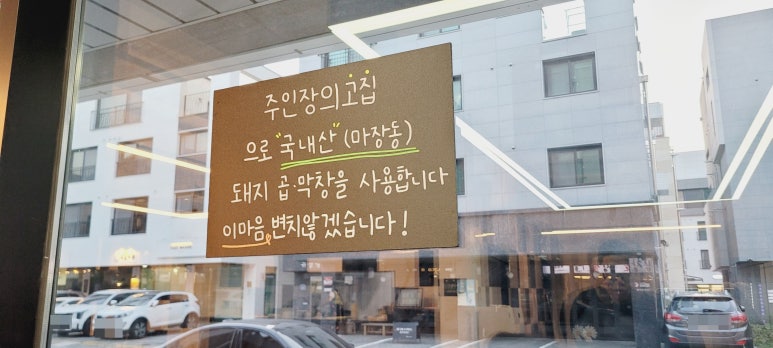 주인장의고집
으로 "국내산" (마장동)
돼지 곱·막창을 사용합니다
이마음, 변치않겠습니다!